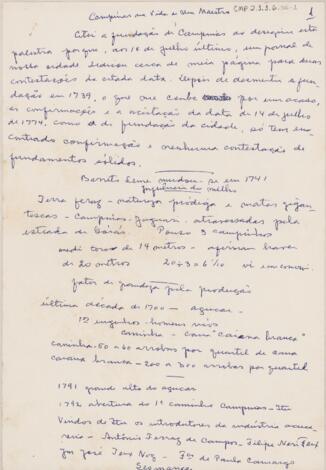 Campinas na Vida de seu Maestro CMP 2.3.3.6.
1
Citei a fundação de Campinas ao designar esta
palestra porque, aos 18 de julho último, um jornal de
nossa cidade dedicou cerca de meia página para duas
contestações da citada data. Depois de documentar a fun-
dação em 1739, o que me coube por um acaso,
as confirmações e a aceitação da data de 14 de julho
de 1774, como a de fundação da cidade, só tem en-
contrado confirmação e nenhuma contestação de
fundamentos sólidos.
Barreto Leme mudou-se em 1741
Terra feraz - natureza prodiga e matas gigan-
tescas - Campinas - Jaguari, atravessadas pela
estrada de Goiás. Pouso 3 campinhos
medi toros de 14 metros - aferiram haver
de 20 metros 20÷3=6 2/10 vi em
fator de grandeza pela produção
última década de 1700 - açucar -
1os engenhos - homens ricos
caninha - cana "caiana branca"
caninha - 50 a 60 arrobas por quartel de cana
caiana branca - 200 a 300 arrobas por quartel
1791 grande alta do açucar
1792 abertura do 1º caminho Campinas-Itu
Vindos de Itu os introdutores da indústria açuca-
reira - Antônio Ferraz de Campos - Filipe Neri Teix
José Teix Nog - Fco de Paula Camargo